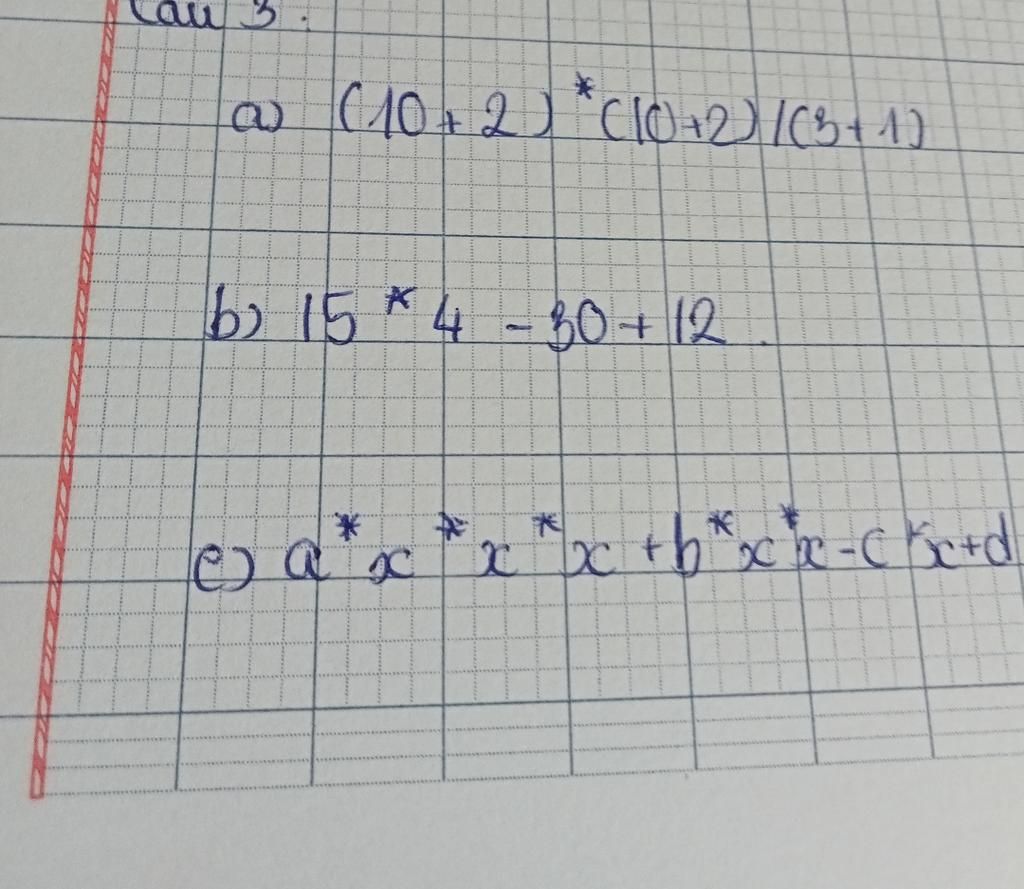 Câu 3.
a) (10+2)*(10+2)/(3+1)
b) 15*4-30+12.
c) a*x*x*x+b*x*x-c*x+d